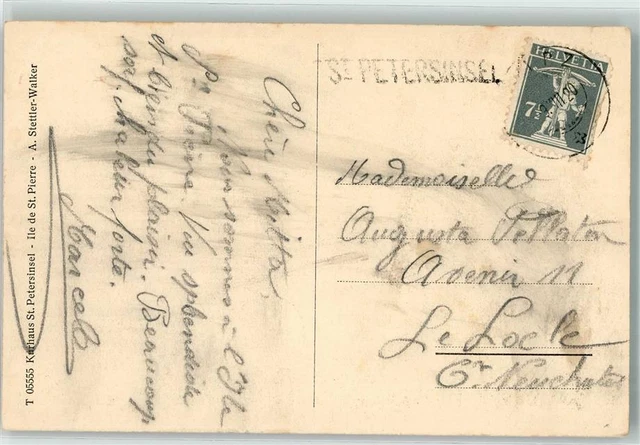 T 05555 Kurhaus St. Petersinsel - Ile de St. Pierre - A. Stettler-Walker
Chère
Nous sommes à l'Ile
St. Pierre. Vue splendide
et bien du plaisir. Beaucoup
soif, chaleur forte.
Marcel
ST PETERSINSEL
HELVETIA
7½
Mademoiselle
Augusta
Avenir 11
Le Locle
Ct. Neuchatel